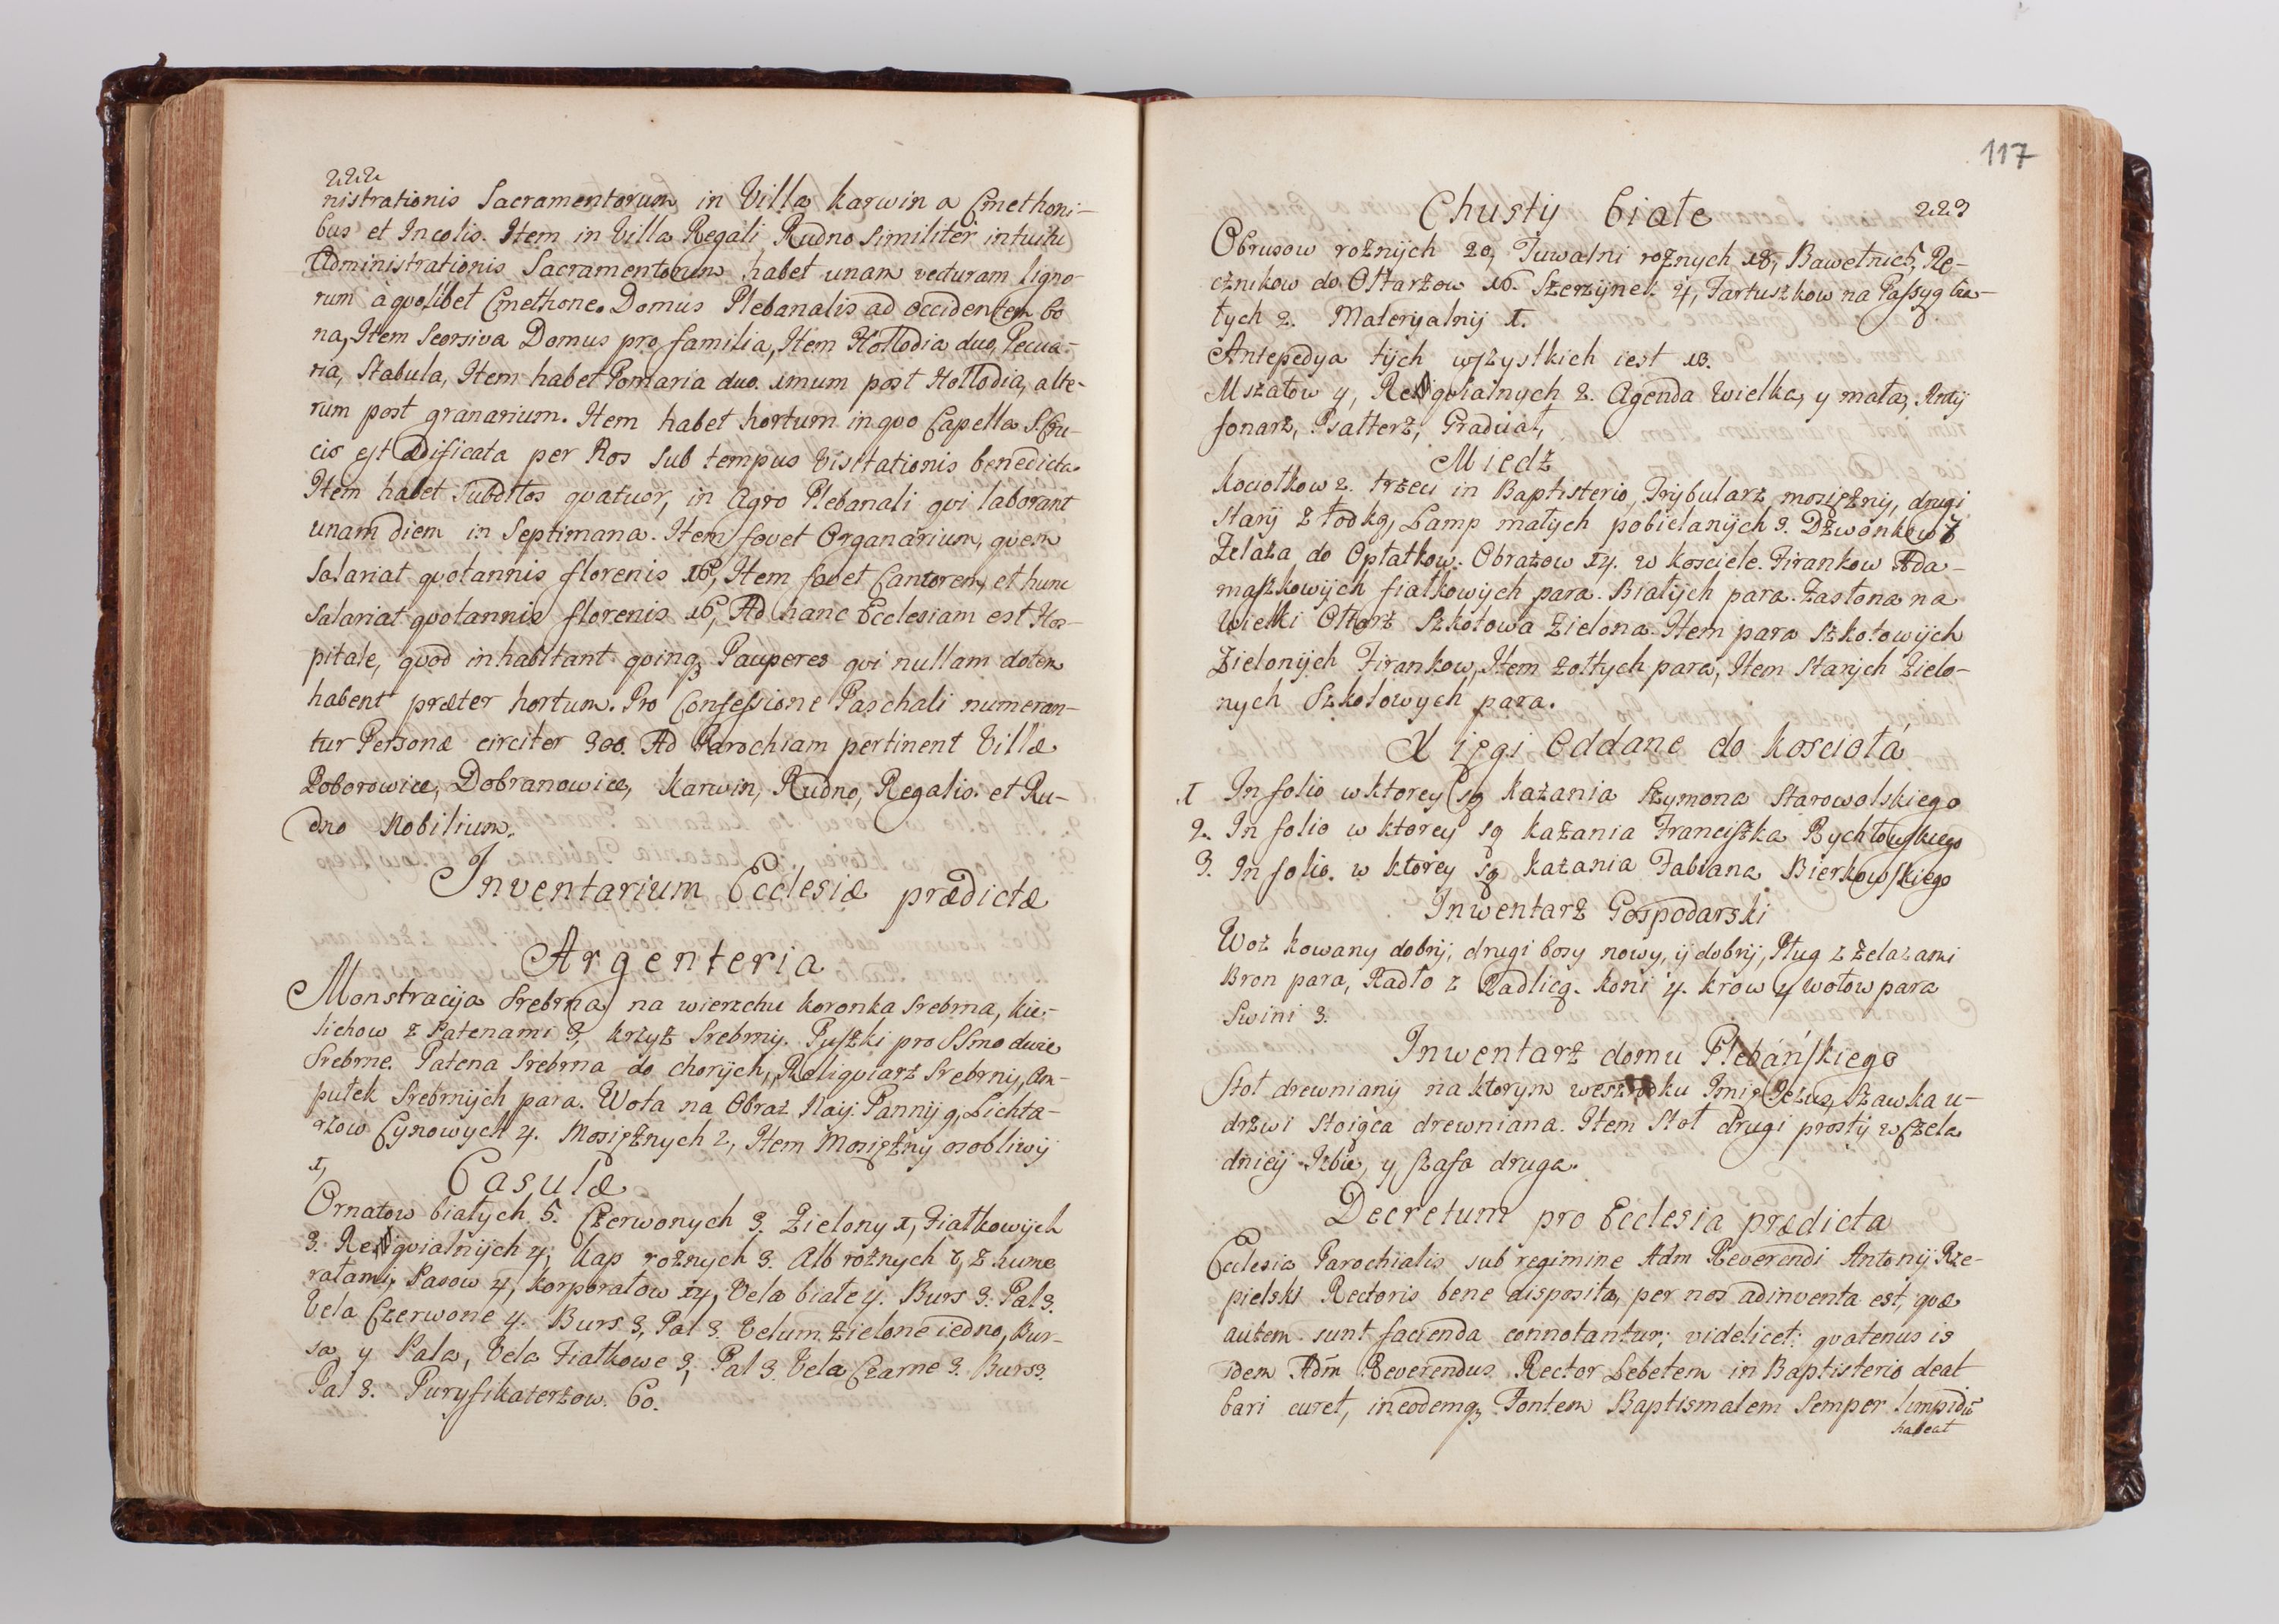 222
nistrationis Sacramentorum in Villa Karwin a Cmethoni-
bus et Incolis. Item in Villa Regali Rudno Similiter intuitu
Administrationis Sacramentorum habet unam vecturam ligno-
rum a quolibet Cmethone. Domus Plebanalis ad Occidentem bo
na, Item Seorsiva Domus pro familia, Item Hollodia duo, Pecua-
ria, Stabula, Item habet Pomaria duo. unum post Hollodia, alte-
rum post granarium. Item habet hortum in quo Capella S. Cru-
cis est ædificata per Nos sub tempus Visitationis benedicta.
Item habet Subditos quatuor, in Agro Plebanali qui laborant
unam diem in Septimana. Item fovet Organarium, quem
Salariat quotannis florenis 16, Item fovet Cantorem, et hunc
Salariat quotannis florenis 16, Ad hanc Ecclesiam est Hos-
pitale, quod inhabitant quinqꝫ Pauperes qui nullam dotem
habent præter hortum. Pro Confessione Paschali numeran-
tur Personæ circiter 300. Ad Parochiam pertinent Villæ
Poborowice, Dobranowice, Karwin, Rudno, Regalis. et Ru-
dno Nobilium.
Inventarium Ecclesiæ prædictæ
Argenteria
Monstracija Srebrna, na wierzchu koronka srebrna, Kie-
lichow z Patenami 3, krzyż Srebrny. Puszki pro SSmo dwie
Srebrne. Patena Srebrna do chorÿch, Reliqviarz Srebrny, Am-
pułek Srebrnÿch para. Wota na Obraz Naÿ: Pannÿ 9, Lichta-
rzow Cÿnowych 4. Mosiężnych 2, Item Mosiężnÿ osobliwÿ
1,
Casulæ
Ornatow białych 5. Czerwonych 3. Zielony 1, Fiałkowÿch
3. Reqvialnÿch 4, Kap rożnych 3. Alb rożnych 8, z hume
rałami, Pasow 4, Korporałow 14, Vela białe 4. Burs 3. Pal 3.
Vela Czerwone 4. Burs 3, Pal 3. Velum Zielone iedno, Bur-
sa, y Pala, Vela Fiałkowe 3, Pal 3. Vela Czarne 3. Burs 3.
Pal 3. Puryfikaterzow. 60.
117
223
Chusty białe
Obrusow rożnÿch 20, Tuwalni rożnych 18, Bawełnic 5, Rę-
cznikow do Ołtarzow 16. Szerzÿnek 4, Fartuszkow na Passyą bia-
łych 2. Materyalnÿ 1.
Antepedya tÿch wszystkich iest 13.
Mszałow 4, Reqvialnych 2. Agenda Wielka, y mała, Antÿ
fonarz, Psałterz, Graduał,
Miedź
Kociołkow 2. trzeci in Baptisterio, Trÿbularz mosiężny, drugi
starÿ z łodką, Lamp małych pobielanÿch 3. Dzwonkow
Żelaza do Opłatkow. Obrazow 14. w kosciele. Firankow Ada-
maszkowÿch fiałkowÿch para. Białÿch para. Zasłona na
Wielki Ołtarz Szkotowa Zielona. Item para Szkotowÿch
Zielonÿch Firankow, Item żołtych para, Item starÿch Zielo-
nych Szkotowych para.
Xięgi Oddane do Kosciołá
1 In folio w ktorey są kazania Szymona Starowolskiego
2. In folio w ktorey są kazania Franciszka Rychłowskiego
3. In folio. w ktorey są kazania Fabiana Bierkowskiego
Inwentarz Gospodarski
Woz kowany dobrÿ, drugi bosy nowy, ÿ dobrÿ, Pług z żelazami
Bron para, Radło z Radlicą. Koni 4. Krow 4 Wołow para
Swini 3.
Inwentarz domu Plebáńskiego
Stoł drewnianÿ na ktorym weszrodku Imię Jezus, Szawka u-
drzwi stoiąca drewniana. Item Stoł drugi prostÿ w czela
dnieÿ Izbie, y szafa druga.
Decretum pro Ecclesia prædicta
Ecclesia Parochialis sub regimine Adm Reverendi Antonij Rze-
pielski Rectoris bene disposita, per nos adinventa est, quæ
autem sunt facienda connotantur; videlicet: quatenus is
idem Adm Reverendus Rector Lebetem in Baptisterio deal
bari curet, in eodemqꝫ Fontem Baptismalem Semper limpidū
habeat